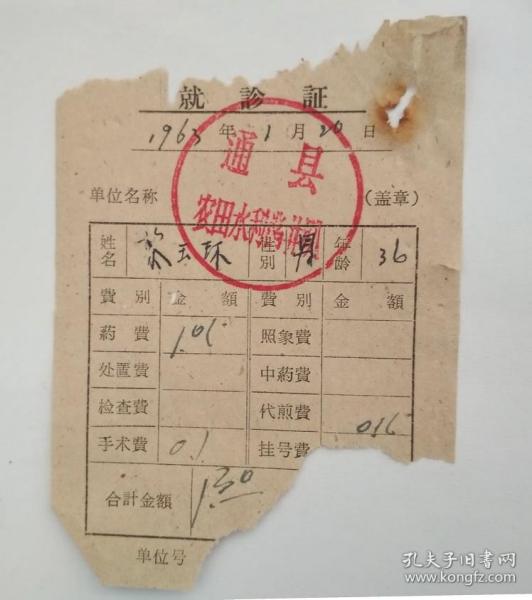 就診証
1963年1月20日
通县
农田水利
单位名称 (盖章)
姓名 玉环 性别 男 年龄 36
費別 金額 費別 金額
葯費 1.05 照象費
处置費 中葯費
检查費 代煎費
手术費 0.1 挂号費 0.15
合計金額 1.30
单位号
孔夫子旧书网
www.kongfz.com